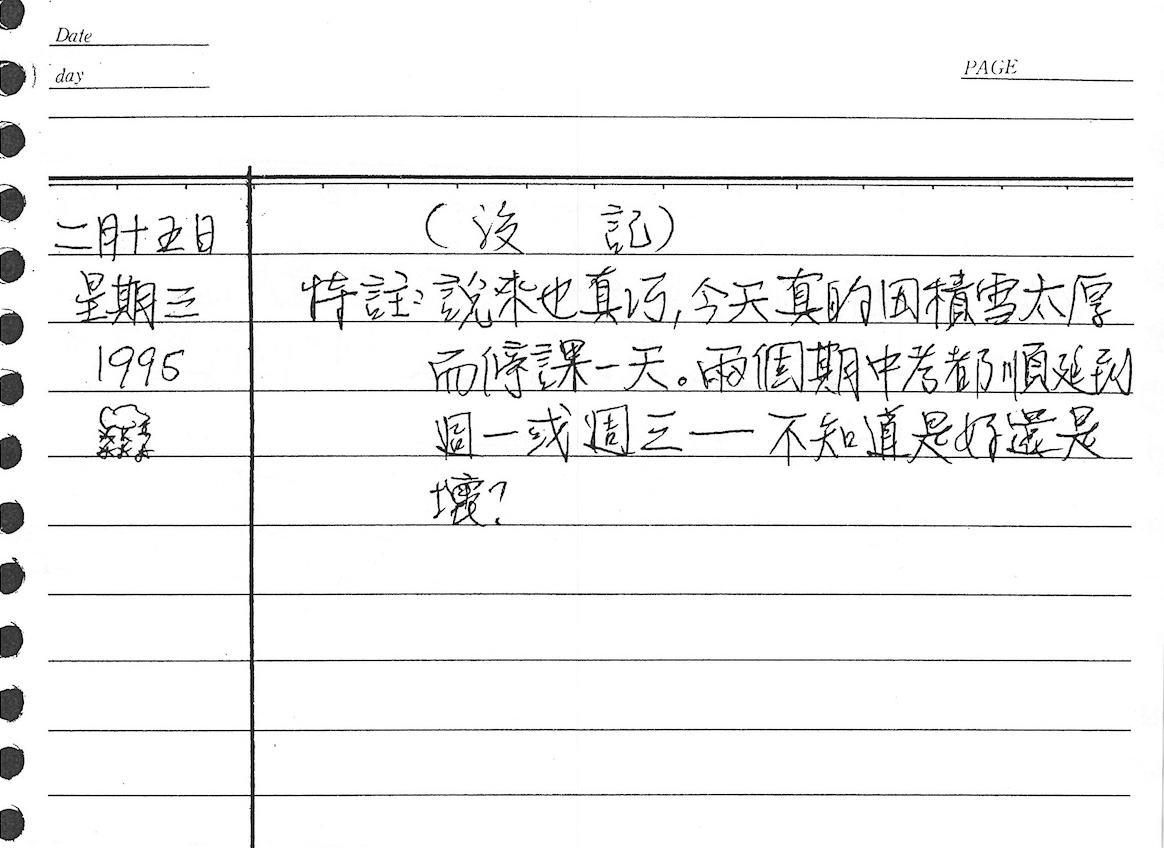 Date
day
PAGE
二月十五日 （没 記）
星期三 特註：說來也真巧，今天真的因積雪太厚
1995 而停課一天。兩個期中考都順延到
週一或週三——不知道是好還是
壞？